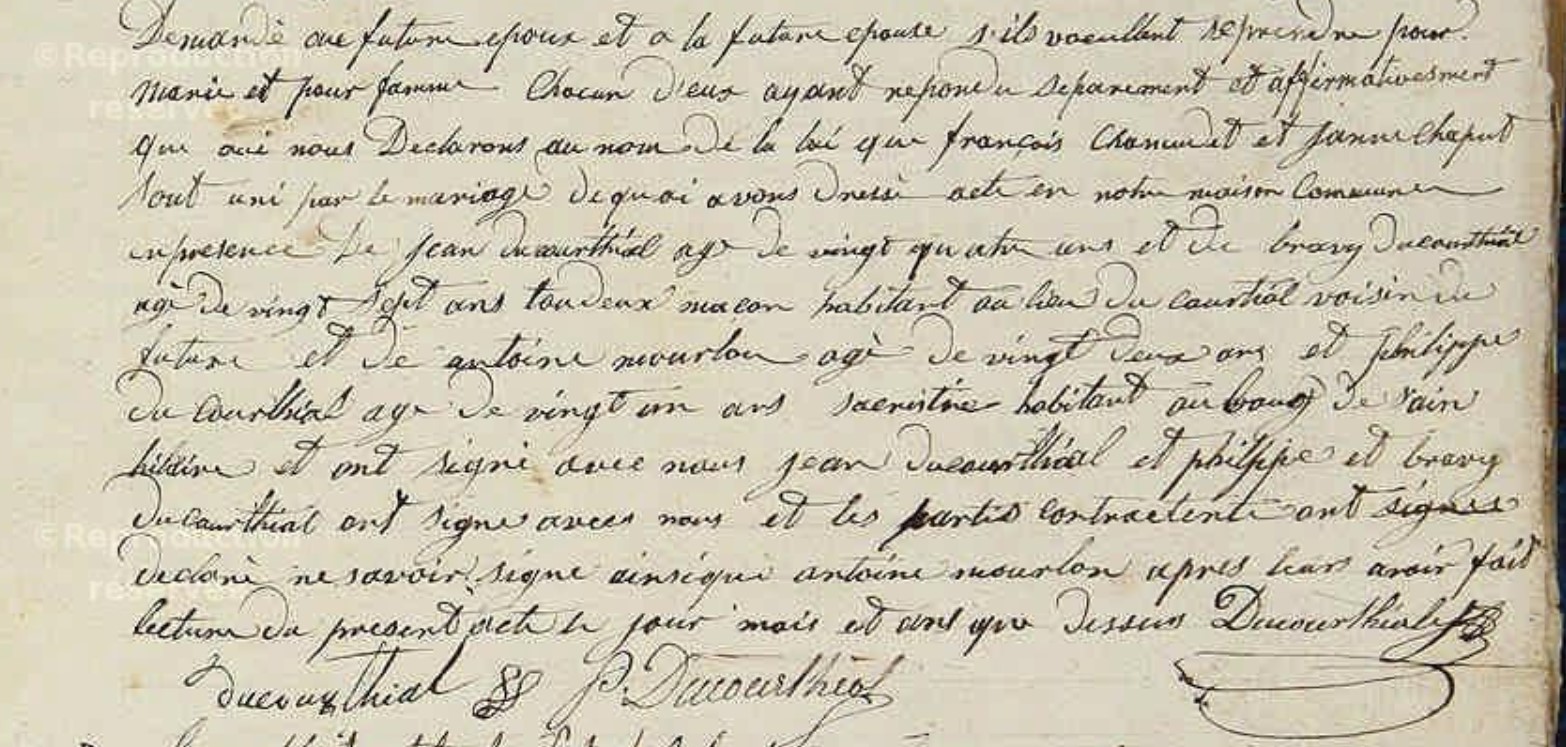 Demandé aue future epoux et a la future epouse s'ils voeullent se prendre pour
marie et pour famme Chacun d'eux ayant repondu separement et affirmativesment
que oui nous Declarons au nom de la loi que françois et janne Chaput
sont uni par le mariage de quoi avons dressé acte en notre maison Commune
en presence de jean ducourthial age de vingt quatre ans et de bravy ducourthial
agé de vingt sept ans tou deux maçon habitant au lieu du courtial voisin du
future et de antoine mourlon agé de vingt deux ans et philippe
du courthial age de vingt un ans sacristie habitant au bourg de sain
hilaire et ont signé avec nous jean ducourthial et philippe et bravy
ducourthial ont signe avces nous et les partis contractente ont signes
declaré ne savoir signe ainsique antoine mourlon apres leurs avoir fait
lecture du present acte le jour mois et ans que dessus Ducourthial
ducourthial P. Ducourthial